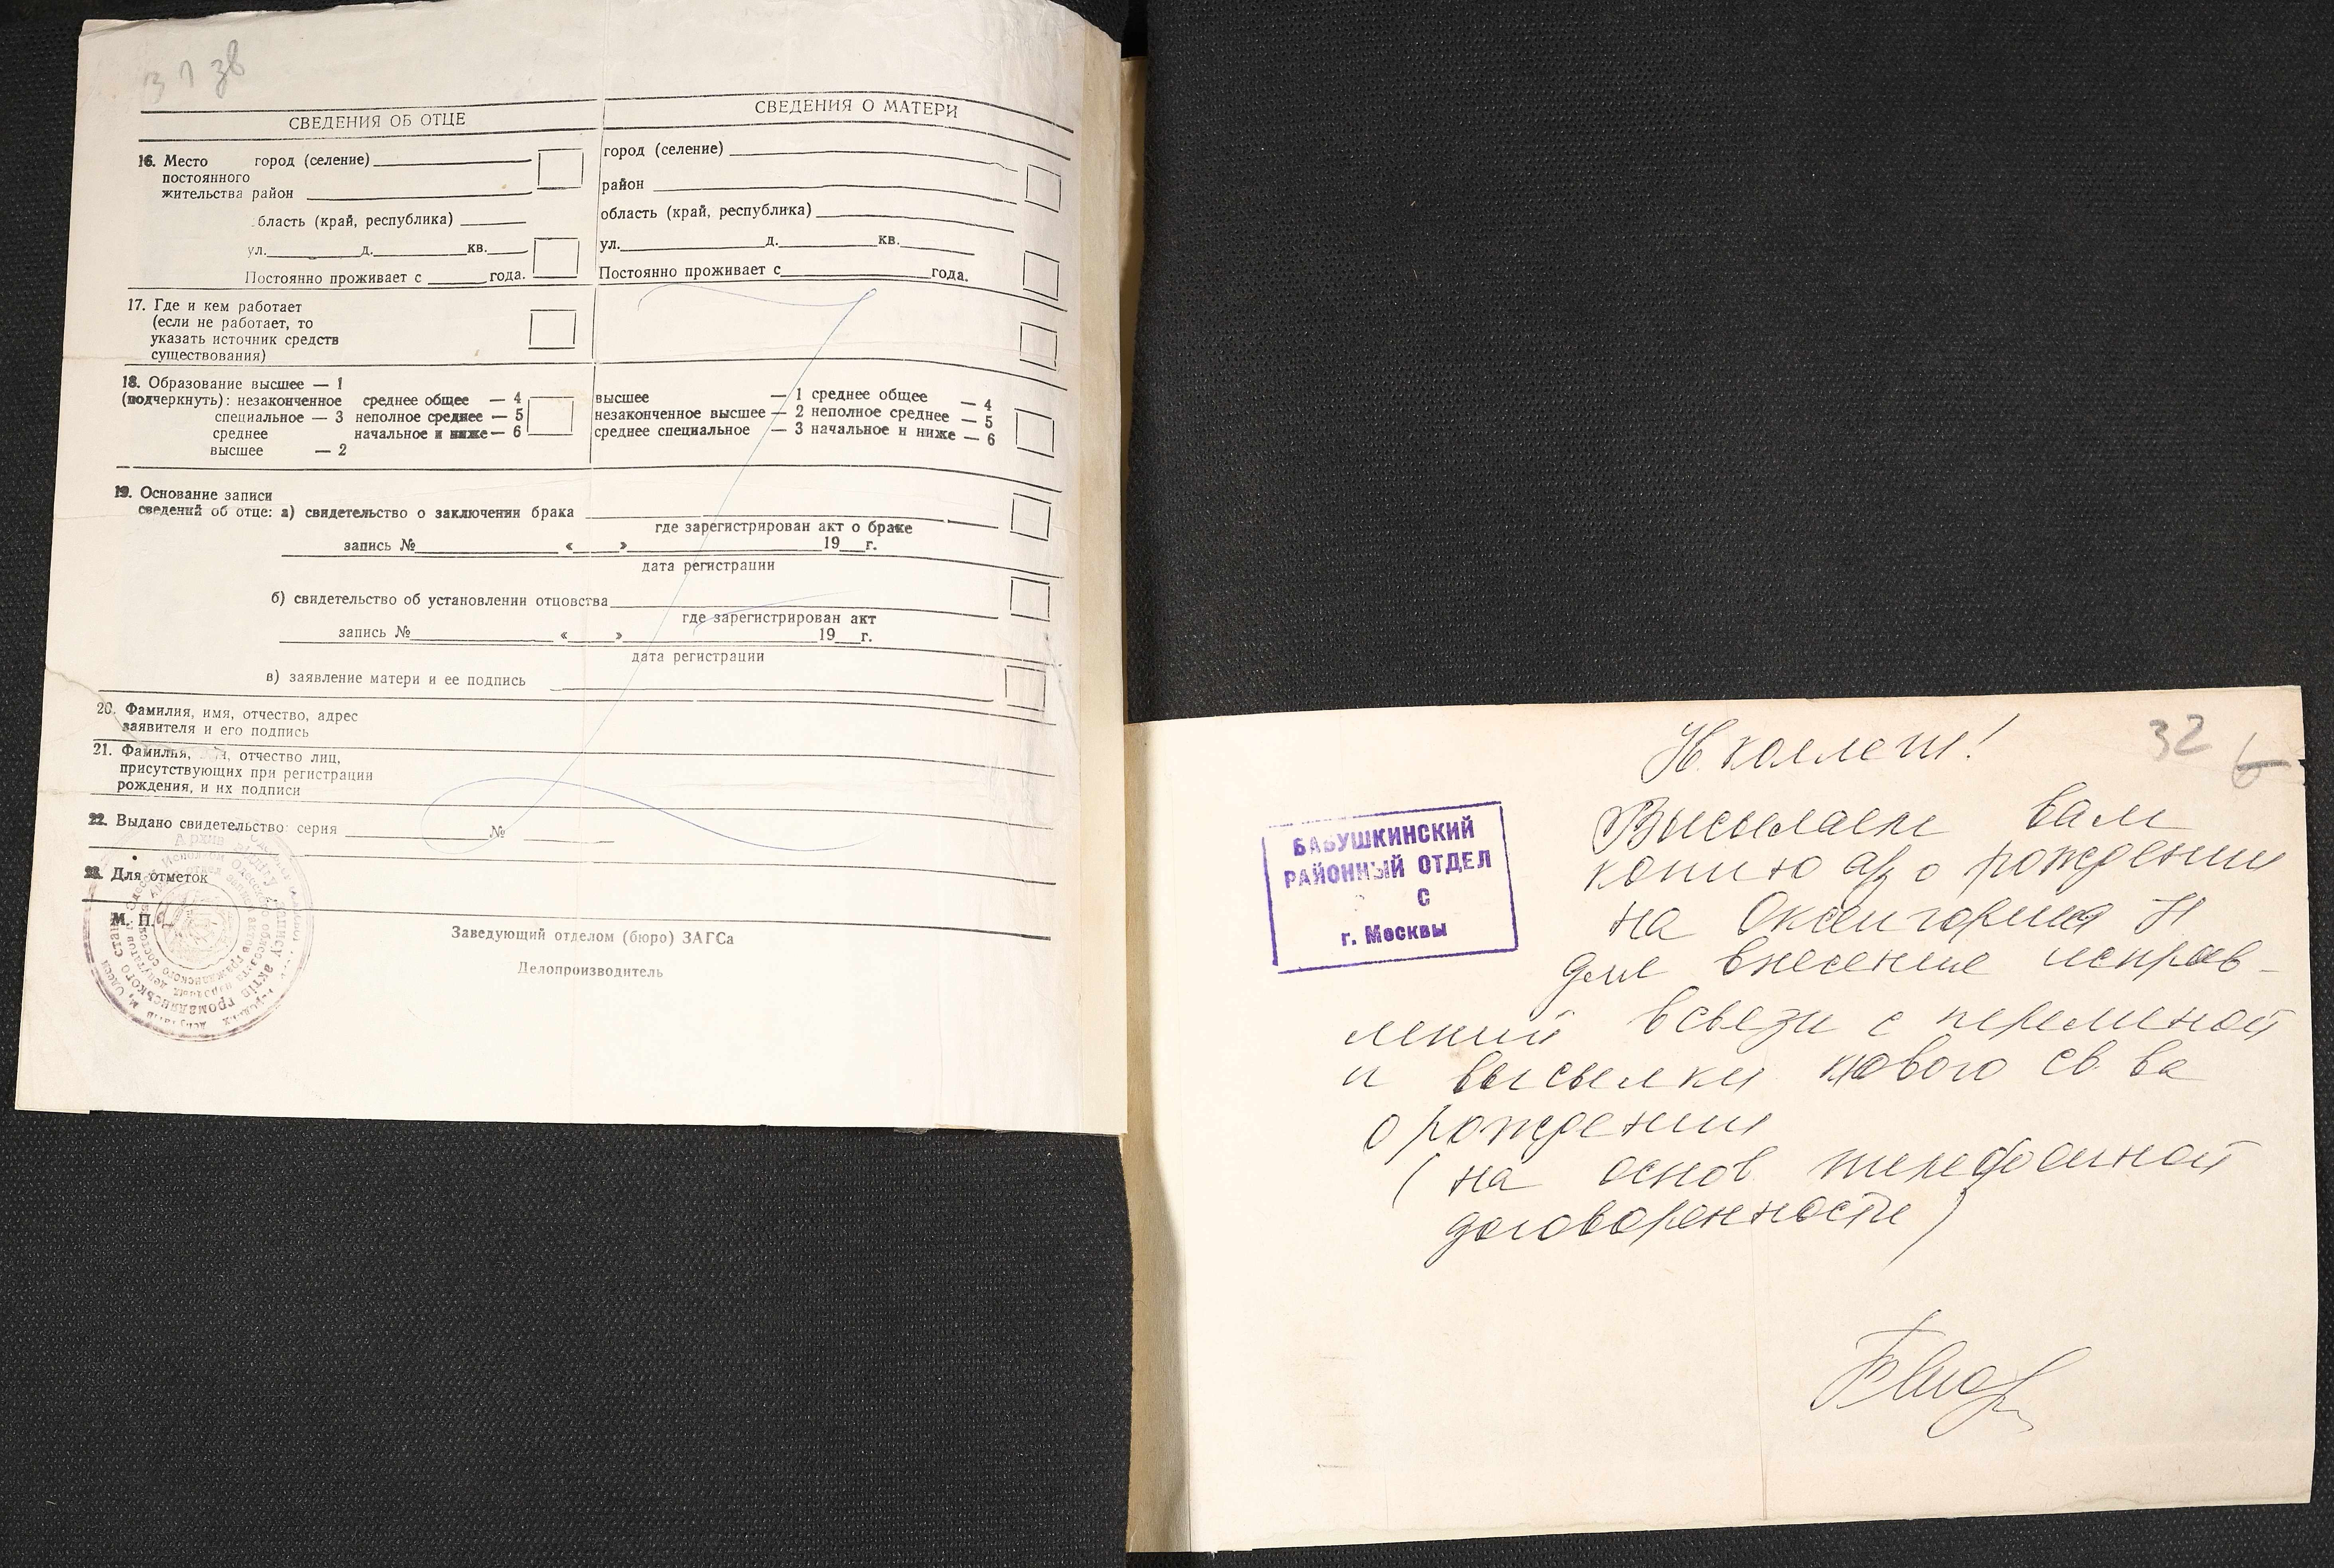 31 зв
СВЕДЕНИЯ ОБ ОТЦЕ
СВЕДЕНИЯ О МАТЕРИ
16. Место постоянного жительства
город (селение)
район
бласть (край, республика)
ул. д. кв.
Постоянно проживает с года.
город (селение)
район
область (край, республика)
ул. д. кв.
Постоянно проживает с года.
17. Где и кем работает
(если не работает, то
указать источник средств
существования)
18. Образование высшее — 1
(подчеркнуть): незаконченное среднее общее — 4
специальное — 3 неполное среднее — 5
среднее начальное и ниже — 6
высшее — 2
высшее — 1 среднее общее — 4
незаконченное высшее — 2 неполное среднее — 5
среднее специальное — 3 начальное и ниже — 6
19. Основание записи
сведений об отце: а) свидетельство о заключении брака
где зарегистрирован акт о браке
запись № « » 19 г.
дата регистрации
б) свидетельство об установлении отцовства
где зарегистрирован акт
запись № « » 19 г.
дата регистрации
в) заявление матери и ее подпись
20. Фамилия, имя, отчество, адрес
заявителя и его подпись
21. Фамилия, отчество лиц,
присутствующих при регистрации
рождения, и их подписи
22. Выдано свидетельство: серия №
23. Для отметок
М. П.
Заведующий отделом (бюро) ЗАГСа
Делопроизводитель
32
6
Н. коллеги!
БАБУШКИНСКИЙ
РАЙОННЫЙ ОТДЕЛ
С
г. Москвы
Высылаем вам
копию а/з о рождении
на Н
для внесение исправ-
лений всвези с переменой
и высылки нового св ва
о рождении
(на основ. телефонной
договоренности)